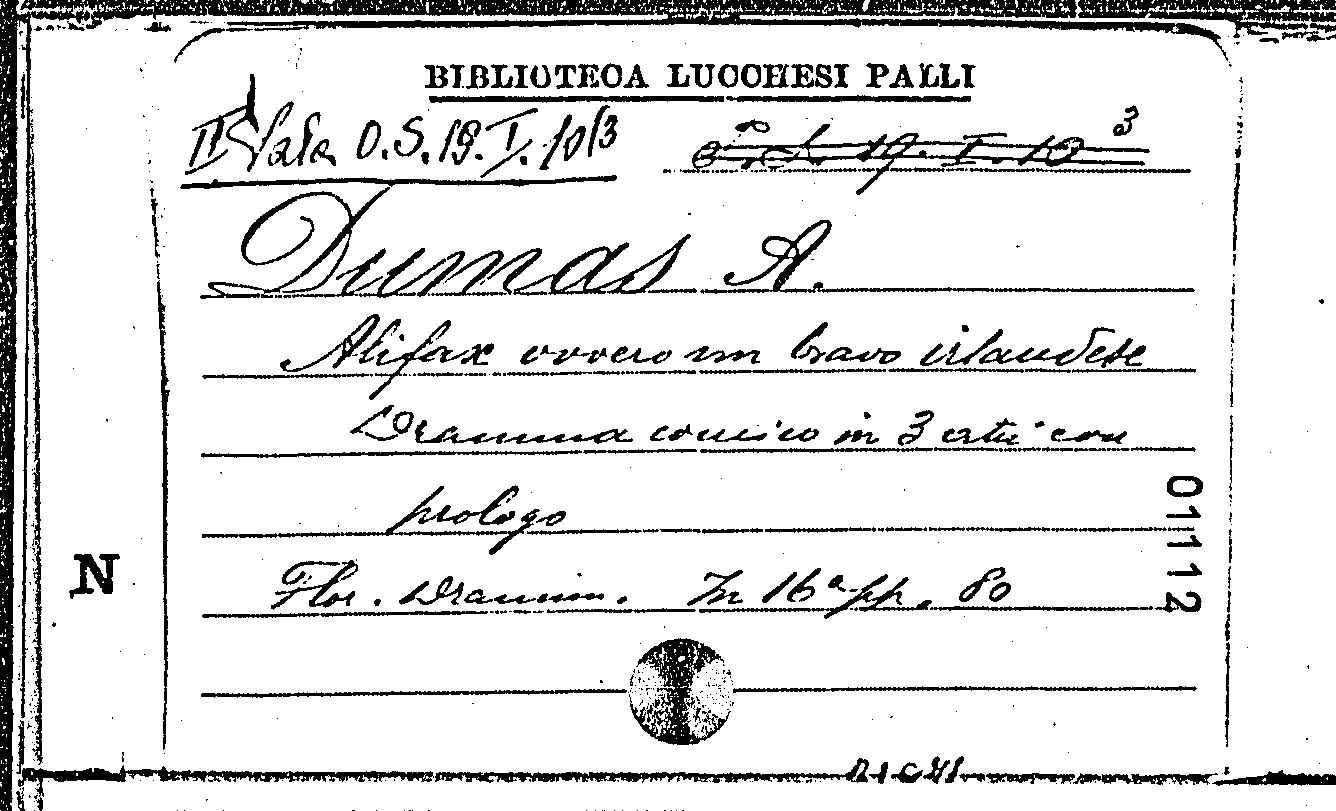 BIBLIOTECA LUCCHESI PALLI
II Sala O.S. 19. I. 10/3
19. I. 10 3
Dumas A.
Alifax ovvero un bravo irlandese
Dramma comico in 3 atti con
prologo
Flor. Dramm. In 16º pp. 80
01112
N